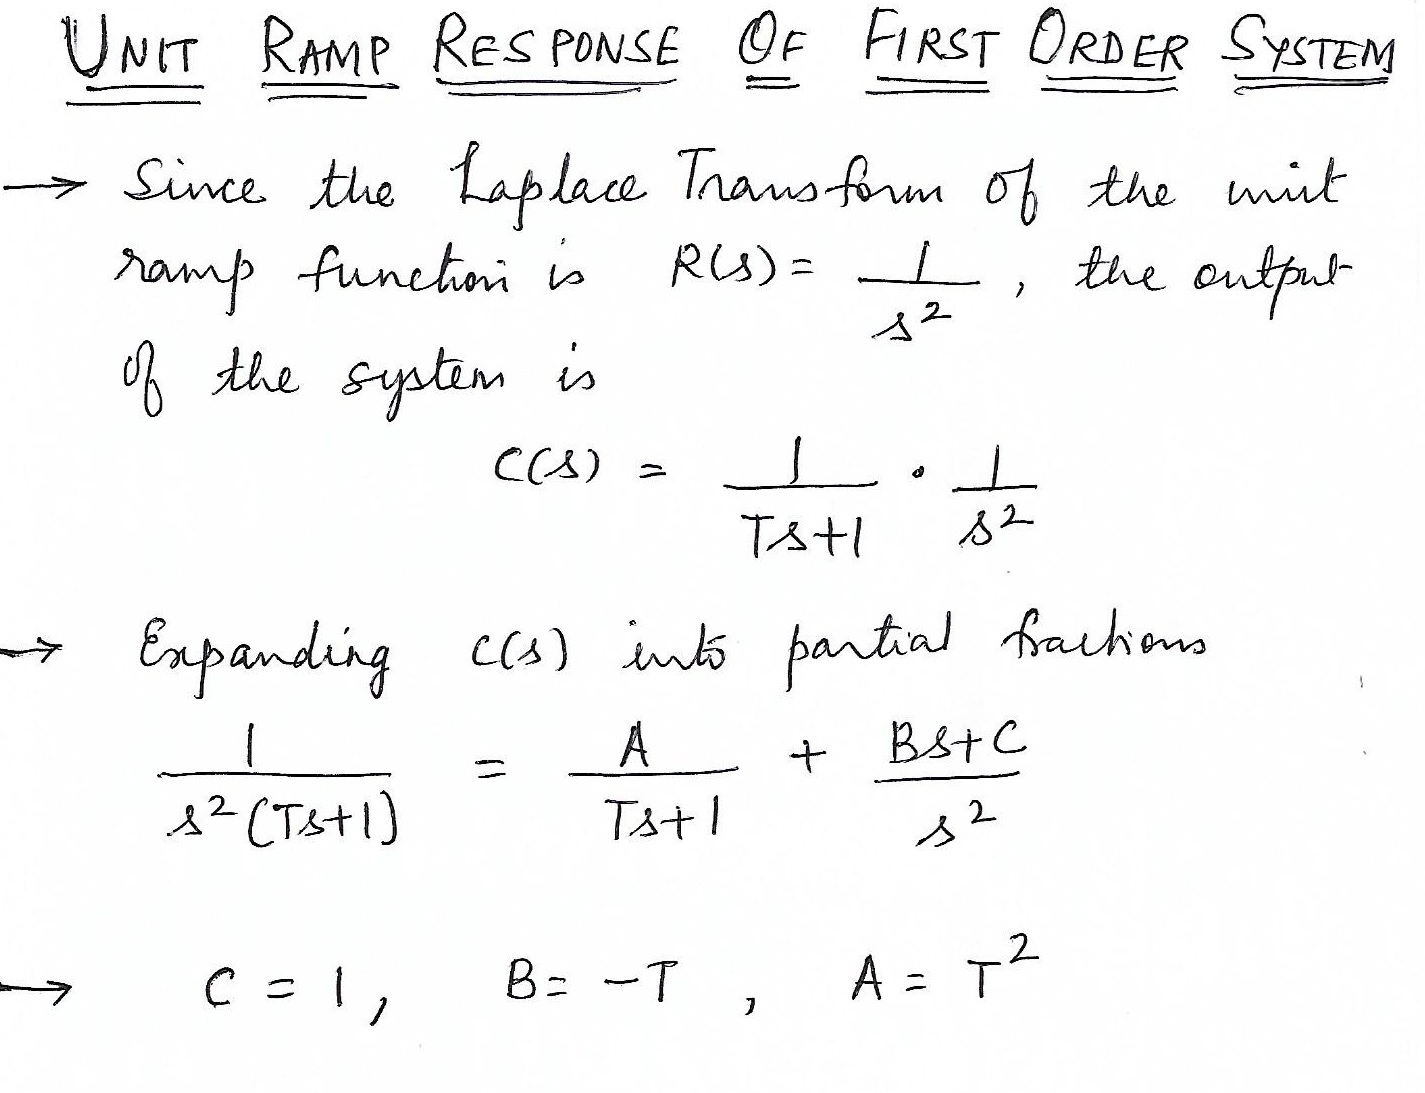 UNIT RAMP RESPONSE OF FIRST ORDER SYSTEM
→ Since the Laplace Transform of the unit
ramp function is R(s) = 1/s², the output
of the system is
C(s) = 1/(Ts+1) · 1/s²
→ Expanding C(s) into partial fractions
1/(s²(Ts+1)) = A/(Ts+1) + (Bs+C)/s²
→ C = 1, B = -T, A = T²